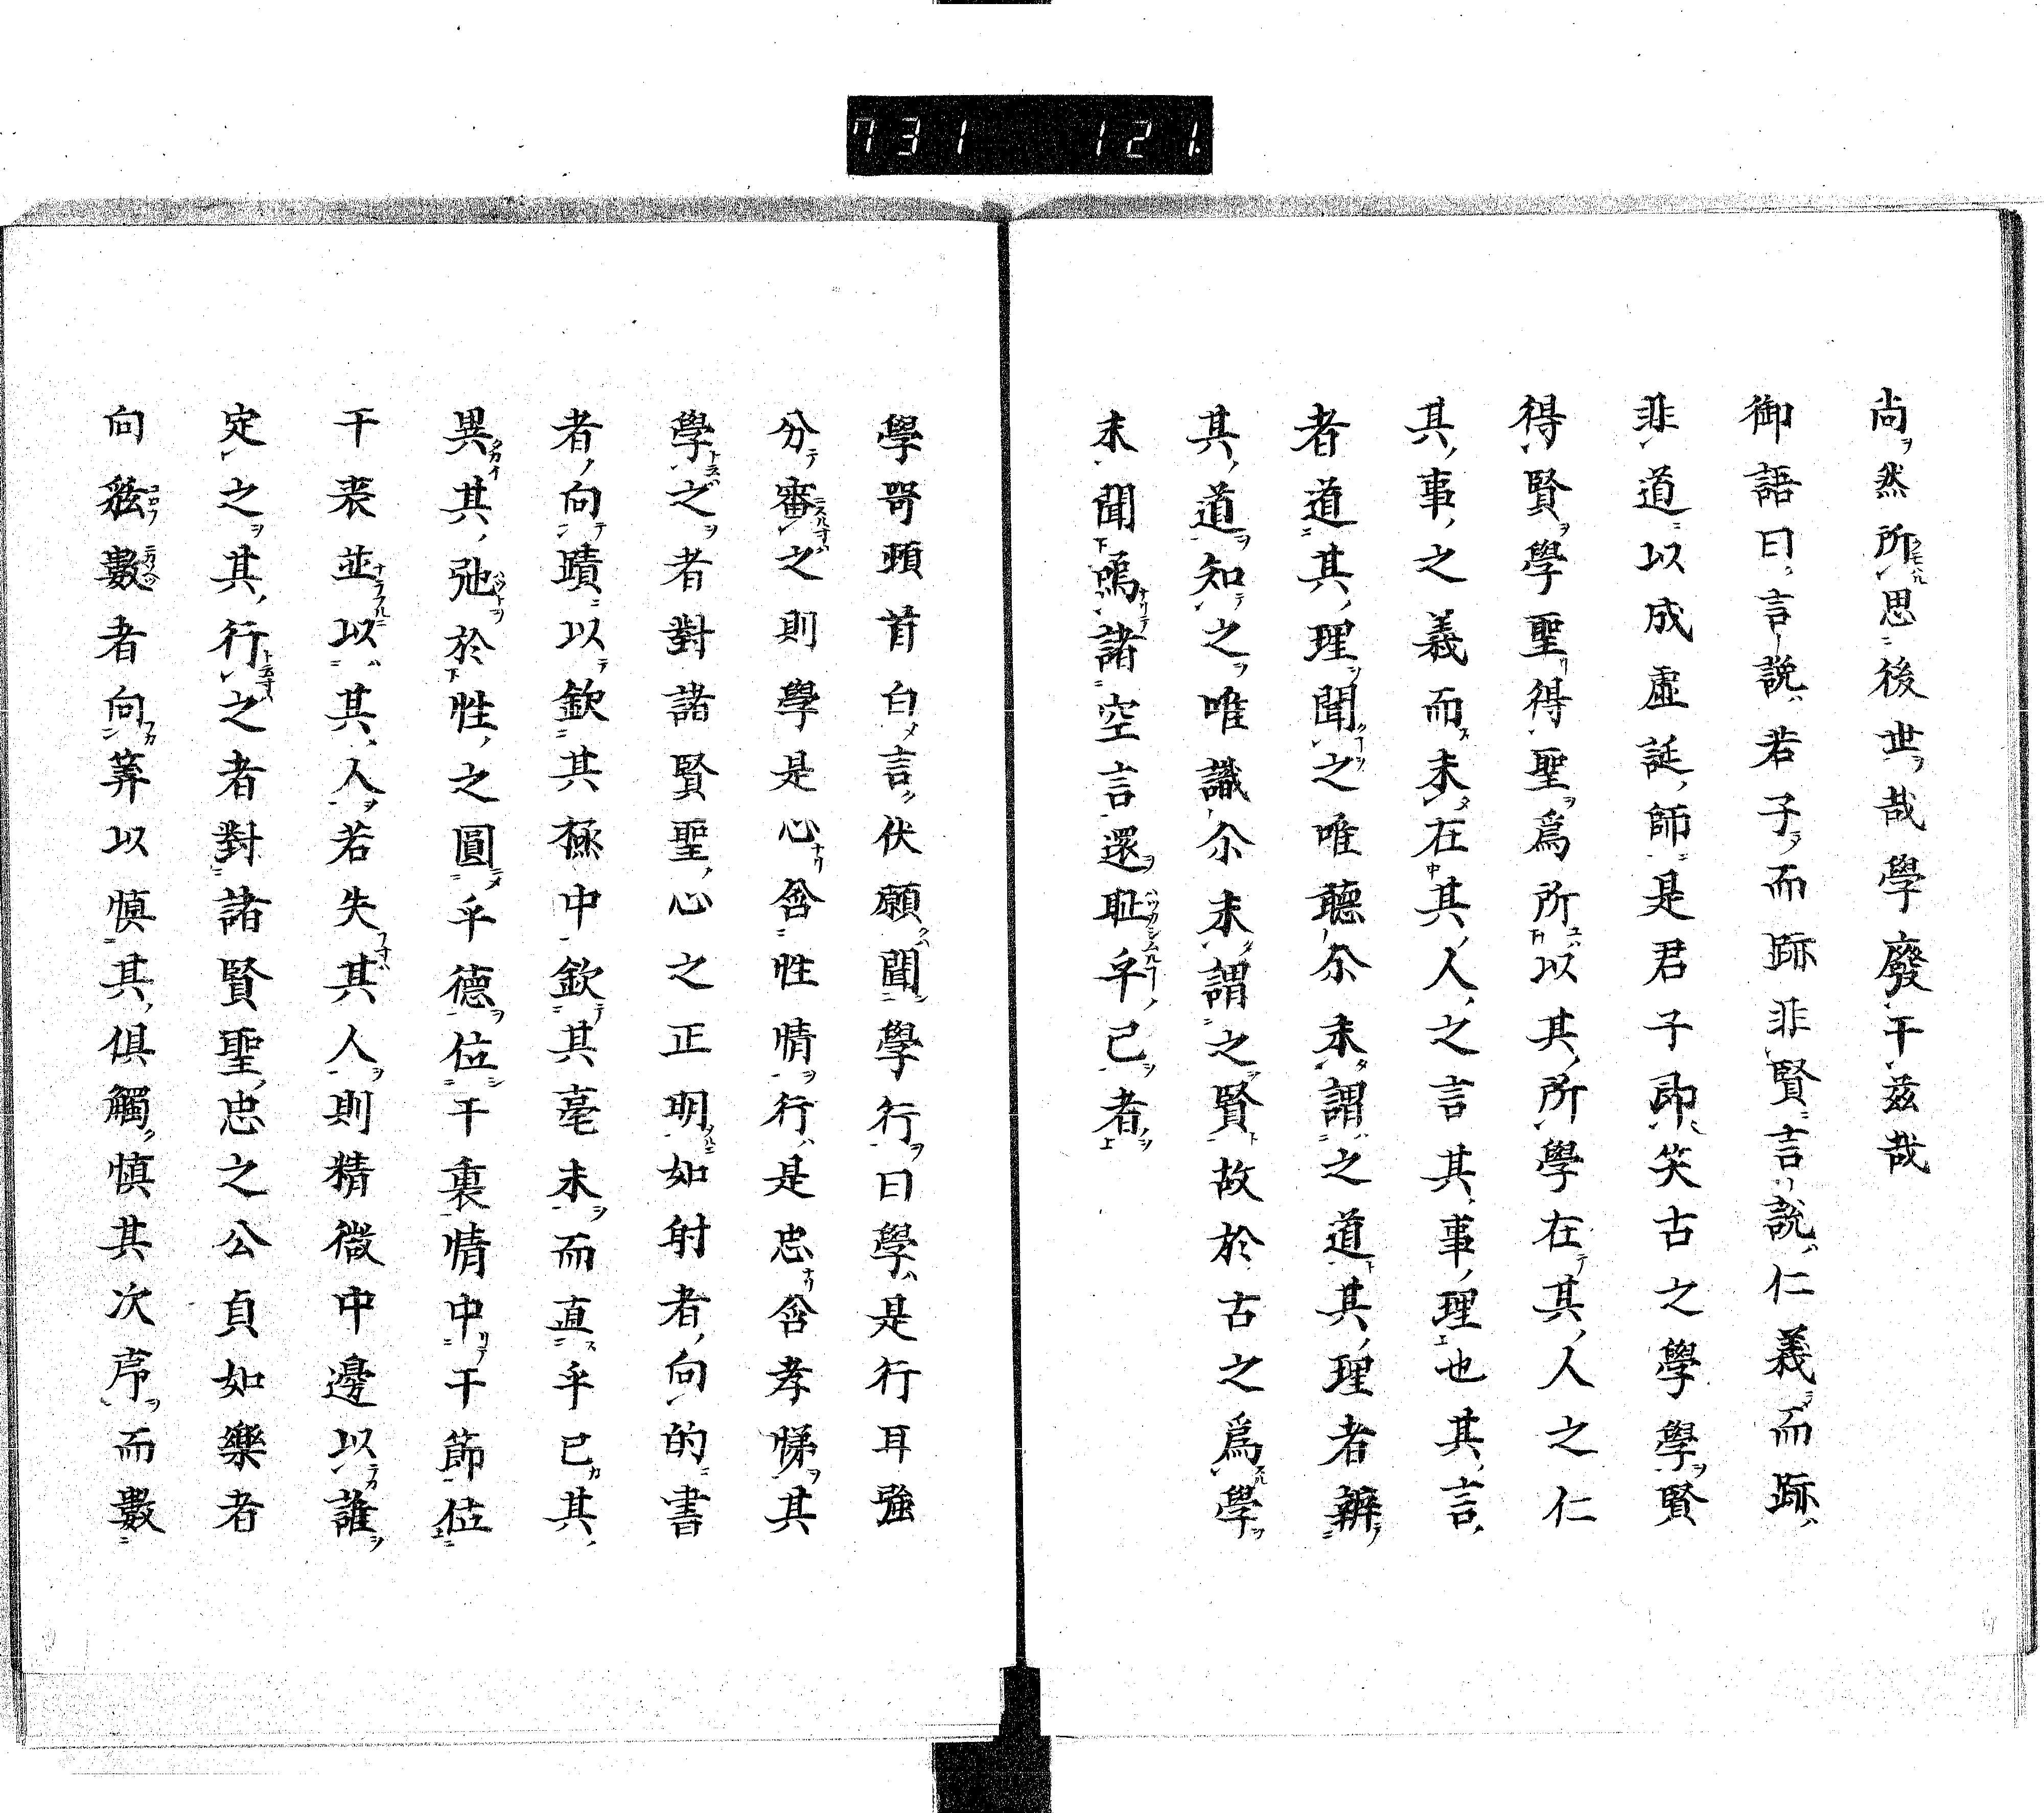 731 121
尚然所思後世哉學廢干兹哉
御語曰言說若子而跡非賢言說仁義而跡
非道以成虛誕師是君子即笑古之學學賢
得賢學聖得聖爲所以其所學在其人之仁
其事之義而未在其人之言其事理也其言
者道其理聞之唯聽尒未謂之道其理者辨
其道知之唯識尒未謂之賢故於古之爲學
未聞鳴諸空言還耻乎己者
學哿頓首白言伏願聞學行曰學是行耳強
分審之則學是心含性情行是忠含孝悌其
學之者對諸賢聖心之正明如射者向的書
者向蹟以欽其極中欽其毫未而直乎己其
異其弛於性之圓乎德位干裏情中干節位
干表並以其人若失其人則精微中邊以誰
定之其行之者對諸賢聖忠之公貞如樂者
向數者向筭以慎其俱觸慎其次序而數